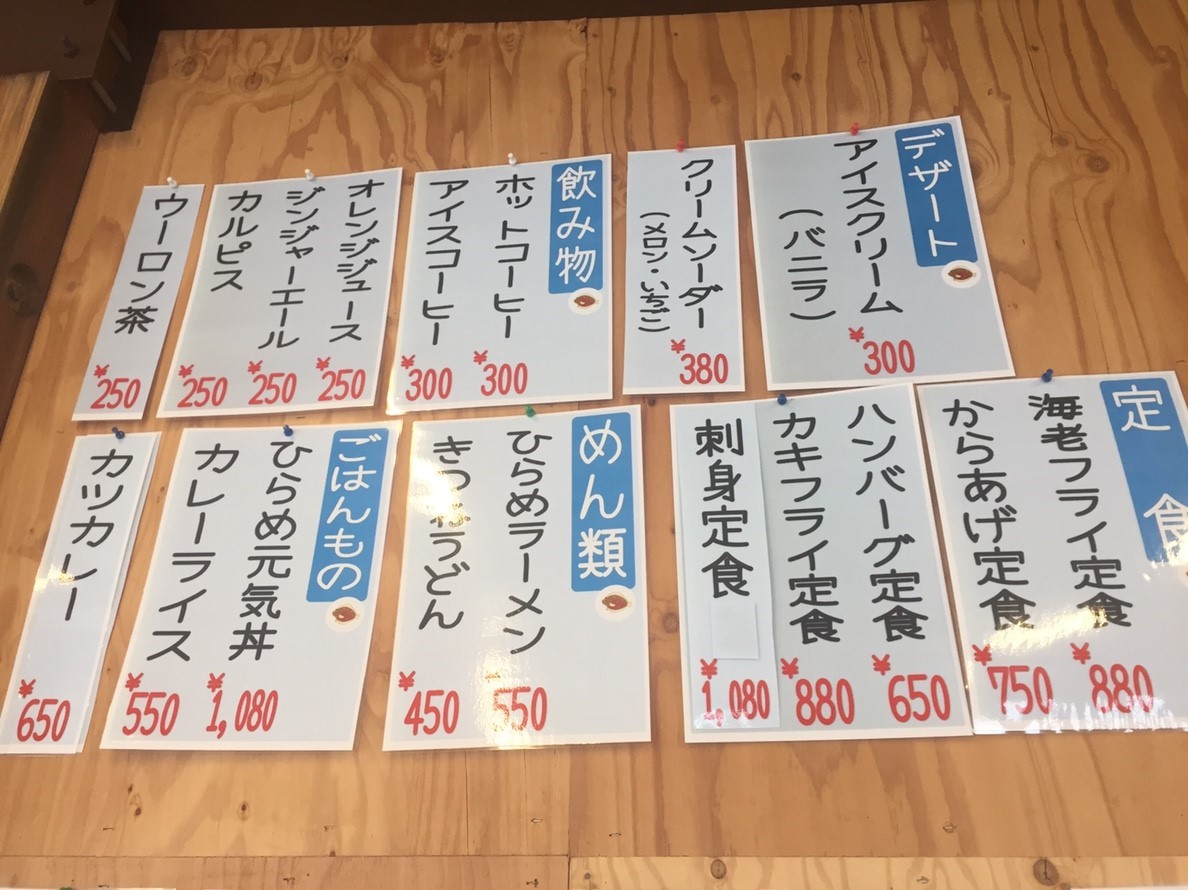 デザート
アイスクリーム
(バニラ)
¥300
クリームソーダー
(メロン・いちご)
¥380
飲み物
ホットコーヒー
¥300
アイスコーヒー
¥300
オレンジジュース
¥250
ジンジャーエール
¥250
カルピス
¥250
ウーロン茶
¥250
定食
海老フライ定食
¥880
からあげ定食
¥750
ハンバーグ定食
¥650
カキフライ定食
¥880
刺身定食
¥1,080
めん類
ひらめラーメン
¥550
きつねうどん
¥450
ごはんもの
ひらめ元気丼
¥1,080
カレーライス
¥550
カツカレー
¥650